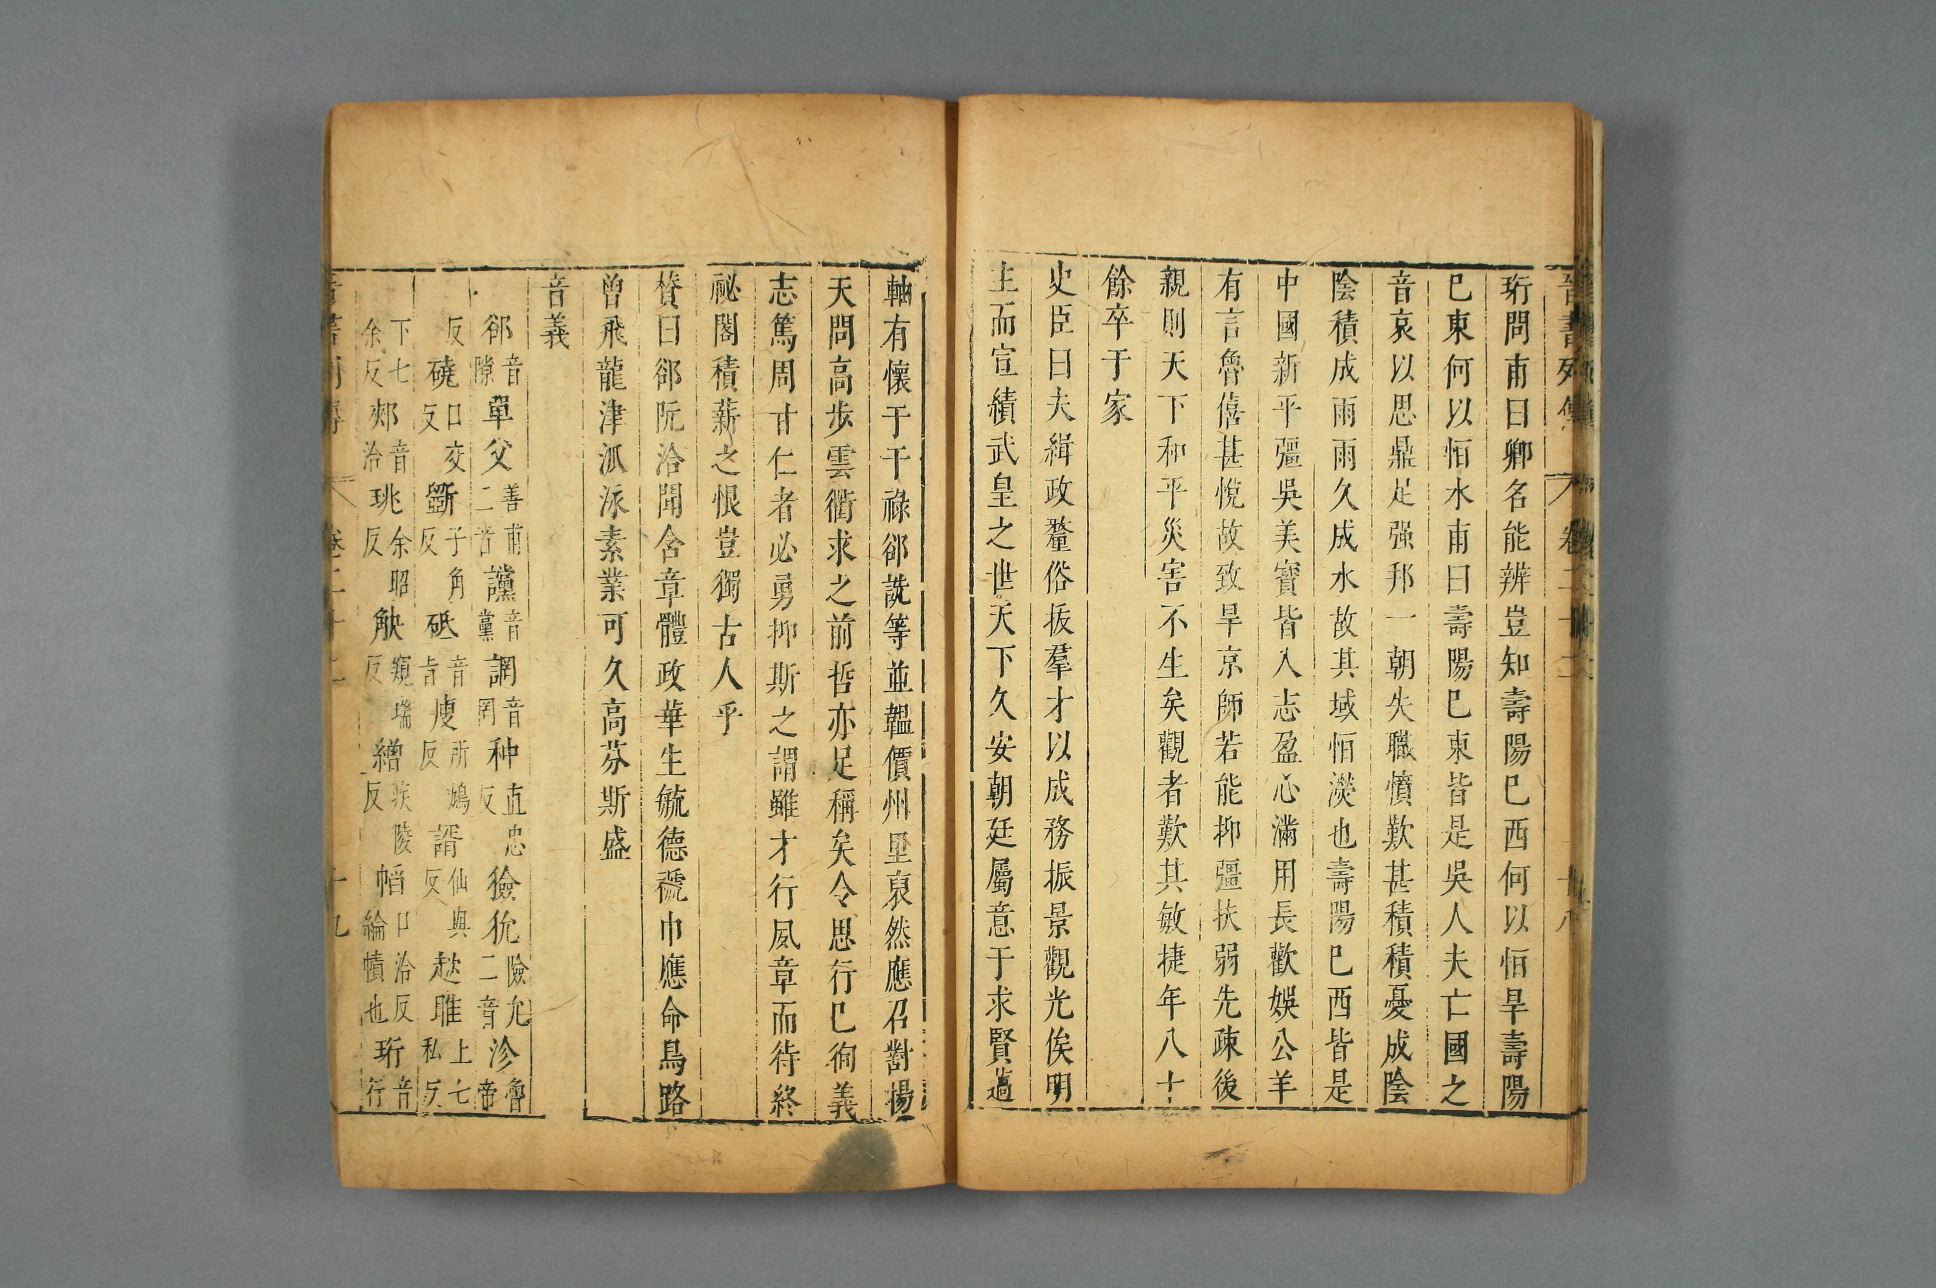 晉書列傳 卷二十二 十八
珩問甫曰卿名能辨豈知壽陽巳西何以恒旱壽陽
巳東何以恒水甫曰壽陽巳東皆是吳人夫亡國之
音哀以思鼎足强邦一朝失職憤歎甚積積憂成陰
陰積成雨雨久成水故其域恒澇也壽陽巳西皆是
中國新平彊吳美寶皆入志盈心滿用長歡娛公羊
有言魯僖甚悅故致旱京師若能抑彊扶弱先疎後
親則天下和平災害不生矣觀者歎其敏捷年八十
餘卒于家
史臣曰夫緝政釐俗拔羣才以成務振景觀光俟明
主而宣績武皇之世天下久安朝廷屬意于求賢薖
軸有懷于干祿郤詵等並韞價州里裒然應召對揚
天問高步雲衢求之前哲亦足稱矣令思行巳徇義
志篤周甘仁者必勇抑斯之謂雖才行夙章而待終
祕閣積薪之恨豈獨古人乎
贊曰郤阮洽聞含章體政華生毓德褫巾應命鳥路
曾飛龍津派泳素業可久高芬斯盛
音義
郤音隙單父善甫二音讜音黨誷音罔种直忠反獫狁險允二音沴魯帝
反磽口交反斵子角反砥音旨廋所鳩反諝仙與反趑雎上七私反
下七余反郟音洽珧余昭反觖窺瑞反繒疾陵反帢口洽反綸幘也珩音行